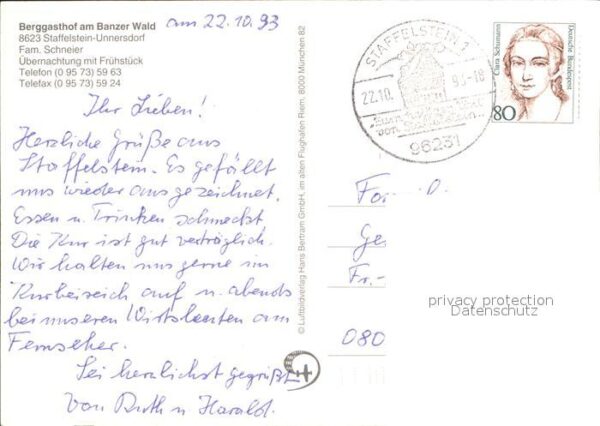 Berggasthof am Banzer Wald
8623 Staffelstein-Unnersdorf
Fam. Schneier
Übernachtung mit Frühstück
Telefon (0 95 73) 59 63
Telefax (0 95 73) 59 24
am 22.10.93
Ihr Lieben!
Herzliche Grüße aus
Staffelstein. Es gefällt
uns wieder ausgezeichnet.
Essen u. Trinken schmeckt
Die Kur ist gut verträglich.
Wir halten uns gerne im
Kurbereich auf u. abends
bei unseren Wirtsleuten am
Fernseher.
Sei herzlichst gegrüßt
von Ruth u Harald.
© Luftbildverlag Hans Bertram GmbH, im alten Flughafen Riem, 8000 München 82
STAFFELSTEIN 1
22.10. 93-18
96231
Clara Schumann
Deutsche Bundespost
80
Fa
D.
Ge
Fr.-
080
privacy protection
Datenschutz